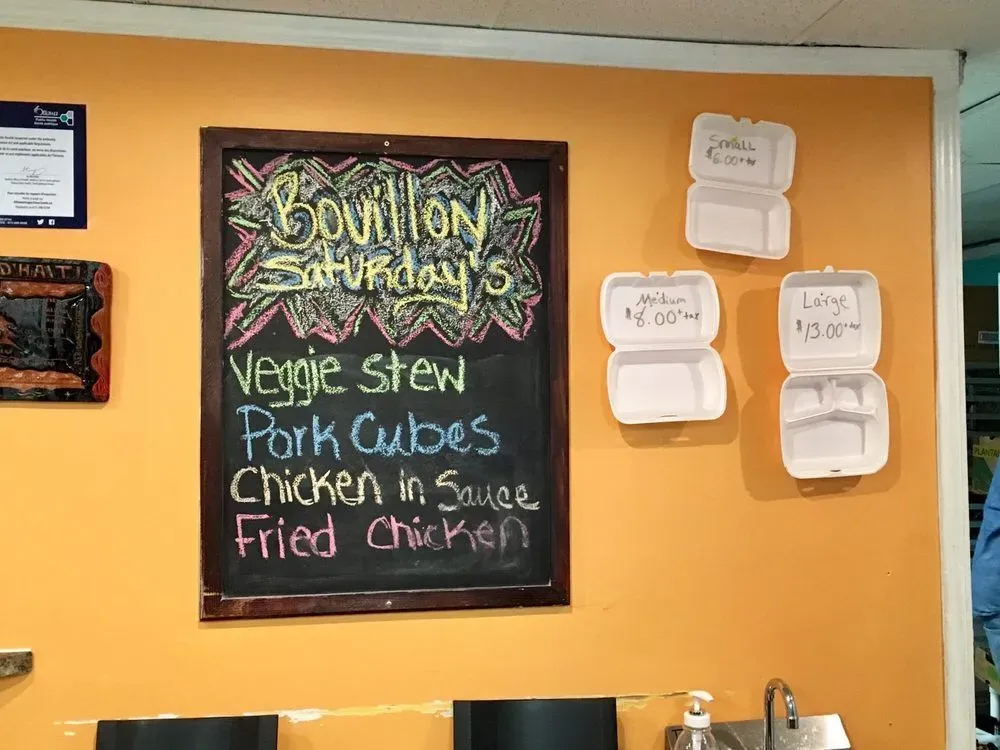 Ottawa
D'HAITI
Bouillon
Saturday's
Veggie Stew
Pork Cubes
Chicken in Sauce
Fried Chicken
Small
$6.00+tax
Medium
$8.00+tax
Large
$13.00+tax
PLANTA